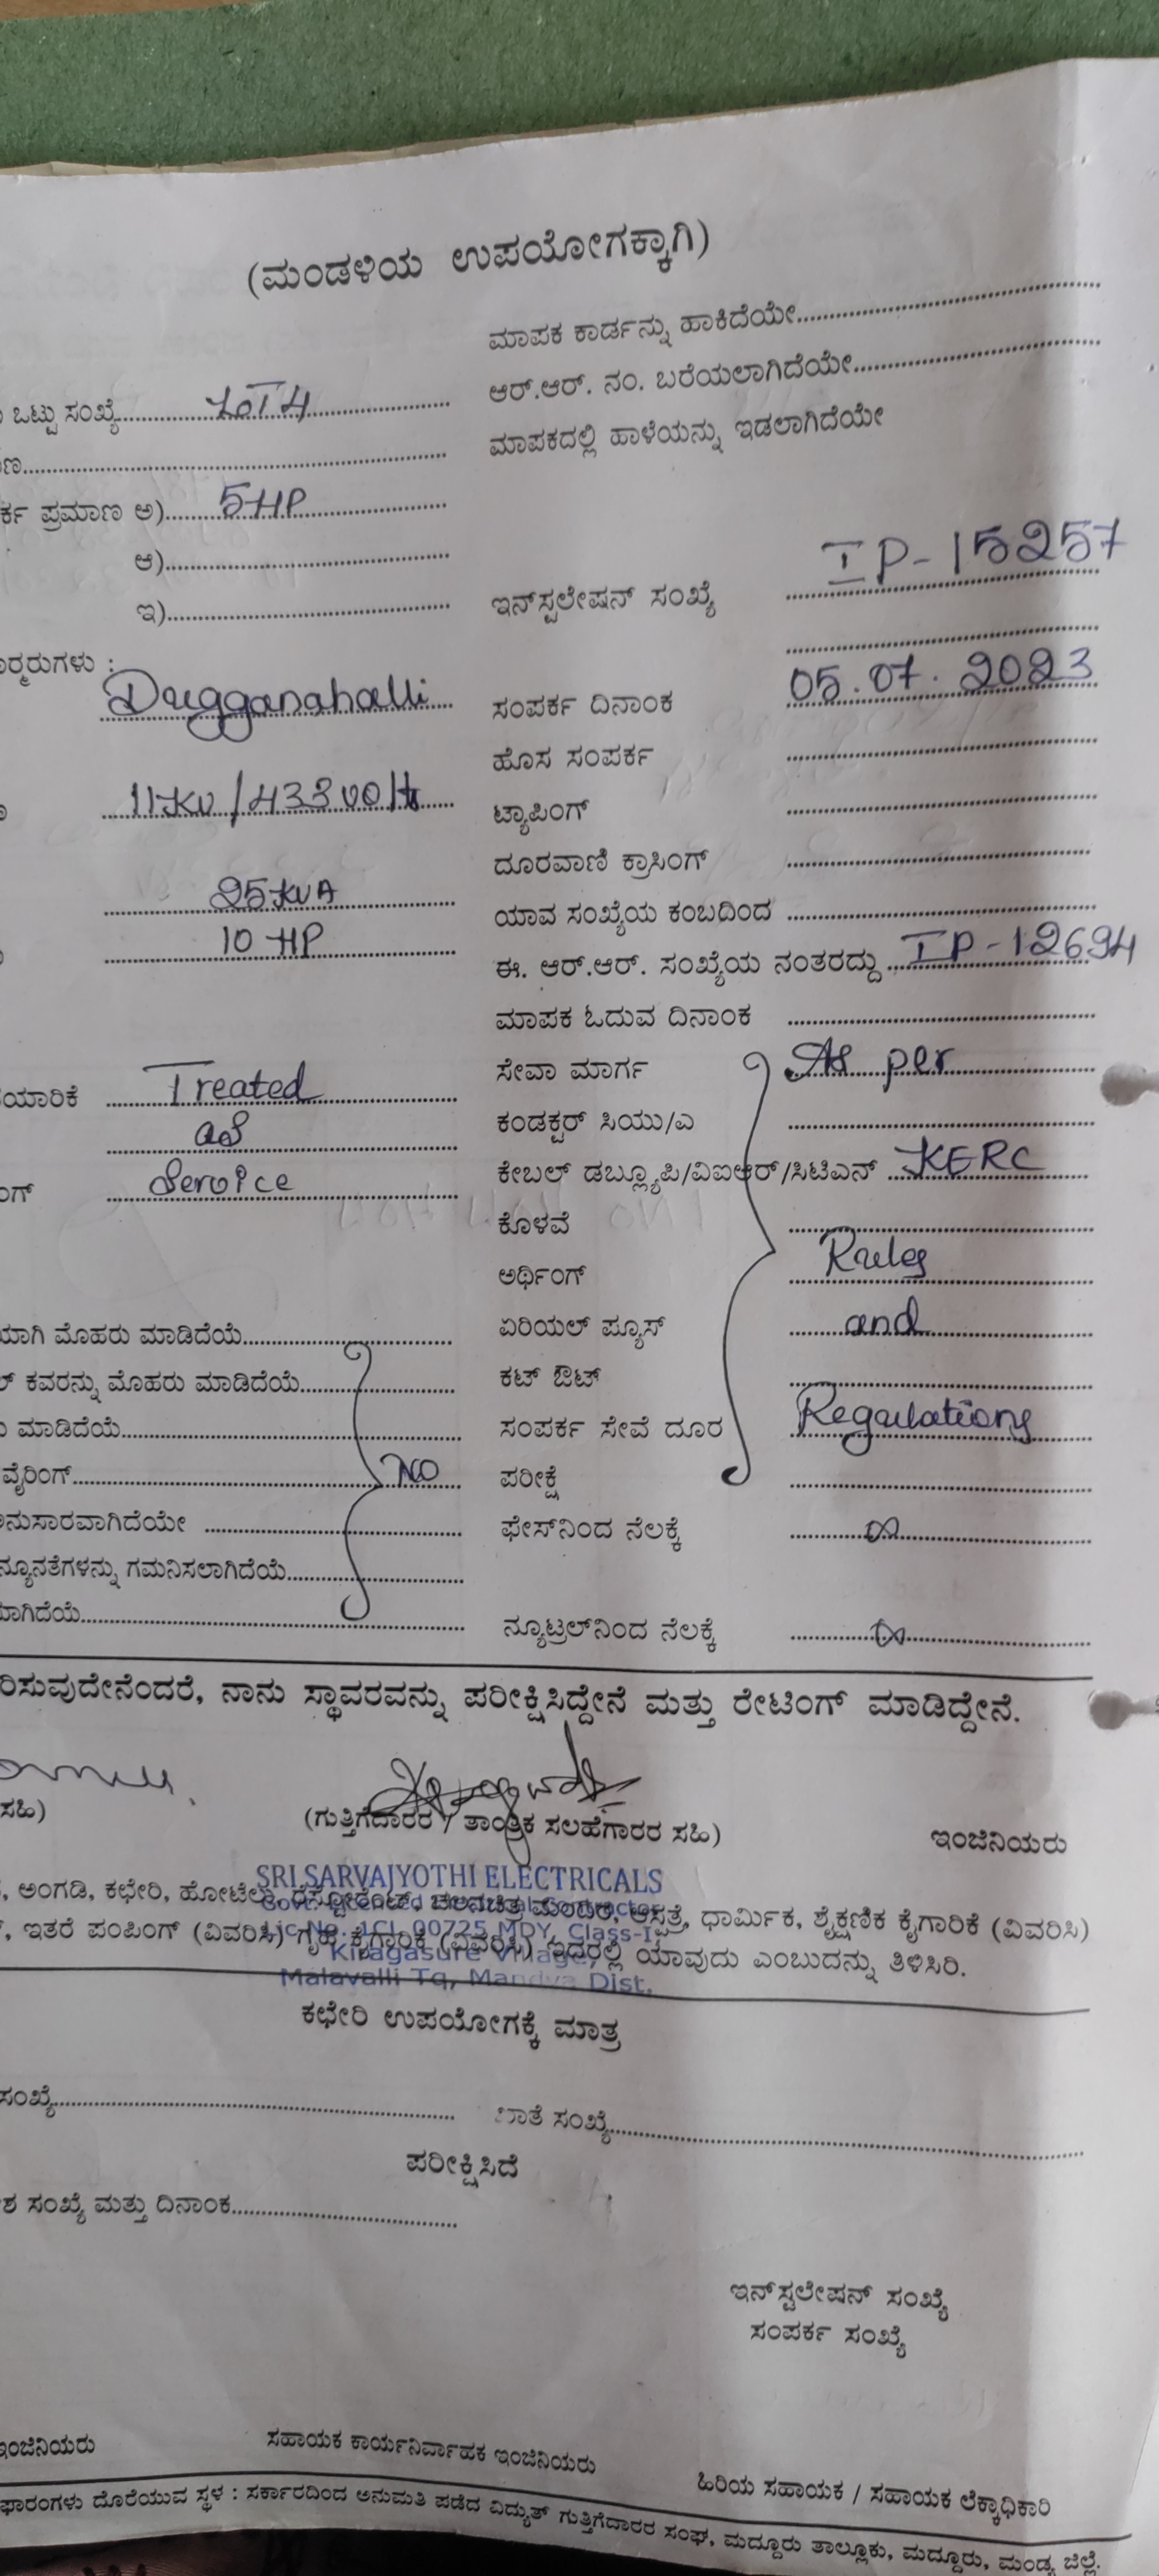 (ಮಂಡಳಿಯ ಉಪಯೋಗಕ್ಕಾಗಿ)
ಮಾಪಕ ಕಾರ್ಡನ್ನು ಹಾಕಿದೆಯೇ
ಒಟ್ಟು ಸಂಖ್ಯೆ
ಆರ್.ಆರ್. ನಂ. ಬರೆಯಲಾಗಿದೆಯೇ
ಮಾಪಕದಲ್ಲಿ ಹಾಳೆಯನ್ನು ಇಡಲಾಗಿದೆಯೇ
ಪ್ರಮಾಣ ಅ) 5 HP
ಆ)
ಇ)
ಇನ್‌ಸ್ಟಲೇಷನ್ ಸಂಖ್ಯೆ IP-15257
Dugganahalli
ಸಂಪರ್ಕ ದಿನಾಂಕ 05.07.2023
ಹೊಸ ಸಂಪರ್ಕ
11KV/433 volt
ಟ್ಯಾಪಿಂಗ್
ದೂರವಾಣಿ ಕ್ರಾಸಿಂಗ್
25 KVA
ಯಾವ ಸಂಖ್ಯೆಯ ಕಂಬದಿಂದ
10 HP
ಈ. ಆರ್.ಆರ್. ಸಂಖ್ಯೆಯ ನಂತರದ್ದು IP-12694
ಮಾಪಕ ಓದುವ ದಿನಾಂಕ
ಸೇವಾ ಮಾರ್ಗ As per
Treated
ಕಂಡಕ್ಟರ್ ಸಿಯು/ಎ
as
ಕೇಬಲ್ ಡಬ್ಲ್ಯೂಪಿ/ವಿಐಆರ್/ಸಿಟಿಎನ್ KERC
Service
ಕೊಳವೆ
ಅರ್ಥಿಂಗ್ Rules
ಏರಿಯಲ್ ಫ್ಯೂಸ್ and
ಮೊಹರು ಮಾಡಿದೆಯೆ
ಕಟ್ ಔಟ್
ಕವರನ್ನು ಮೊಹರು ಮಾಡಿದೆಯೆ
ಸಂಪರ್ಕ ಸೇವೆ ದೂರ Regulations
ಮಾಡಿದೆಯೆ
ಪರೀಕ್ಷೆ
ವೈರಿಂಗ್ NO
ಫೇಸ್‌ನಿಂದ ನೆಲಕ್ಕೆ ∞
ನ್ಯೂನತೆಗಳನ್ನು ಗಮನಿಸಲಾಗಿದೆಯೆ
ನ್ಯೂಟ್ರಲ್‌ನಿಂದ ನೆಲಕ್ಕೆ ∞
ನಾನು ಸ್ಥಾವರವನ್ನು ಪರೀಕ್ಷಿಸಿದ್ದೇನೆ ಮತ್ತು ರೇಟಿಂಗ್ ಮಾಡಿದ್ದೇನೆ.
ಸಹಿ)
(ಗುತ್ತಿಗೆದಾರರ / ತಾಂತ್ರಿಕ ಸಲಹೆಗಾರರ ಸಹಿ)
ಇಂಜಿನಿಯರು
SRI SARVAJYOTHI ELECTRICALS
Lic.No. 1CL 00725 MDY, Class-I
Kiragasure Village,
Malavalli Tq, Mandya Dist.
ಅಂಗಡಿ, ಕಛೇರಿ, ಹೋಟೆಲು, ರೆಸ್ಟೋರೆಂಟ್, ಚಲನಚಿತ್ರ ಮಂದಿರ, ಆಸ್ಪತ್ರೆ, ಧಾರ್ಮಿಕ, ಶೈಕ್ಷಣಿಕ ಕೈಗಾರಿಕೆ (ವಿವರಿಸಿ)
ಇತರೆ ಪಂಪಿಂಗ್ (ವಿವರಿಸಿ) ಗೃಹ ಕೈಗಾರಿಕೆ (ವಿವರಿಸಿ) ಇದರಲ್ಲಿ ಯಾವುದು ಎಂಬುದನ್ನು ತಿಳಿಸಿರಿ.
ಕಛೇರಿ ಉಪಯೋಗಕ್ಕೆ ಮಾತ್ರ
ಸಂಖ್ಯೆ
ಖಾತೆ ಸಂಖ್ಯೆ
ಪರೀಕ್ಷಿಸಿದೆ
ಸಂಖ್ಯೆ ಮತ್ತು ದಿನಾಂಕ
ಇನ್‌ಸ್ಟಲೇಷನ್ ಸಂಖ್ಯೆ
ಸಂಪರ್ಕ ಸಂಖ್ಯೆ
ಇಂಜಿನಿಯರು
ಸಹಾಯಕ ಕಾರ್ಯನಿರ್ವಾಹಕ ಇಂಜಿನಿಯರು
ಹಿರಿಯ ಸಹಾಯಕ / ಸಹಾಯಕ ಲೆಕ್ಕಾಧಿಕಾರಿ
ಫಾರಂಗಳು ದೊರೆಯುವ ಸ್ಥಳ : ಸರ್ಕಾರದಿಂದ ಅನುಮತಿ ಪಡೆದ ವಿದ್ಯುತ್ ಗುತ್ತಿಗೆದಾರರ ಸಂಘ, ಮದ್ದೂರು ತಾಲ್ಲೂಕು, ಮದ್ದೂರು, ಮಂಡ್ಯ ಜಿಲ್ಲೆ.